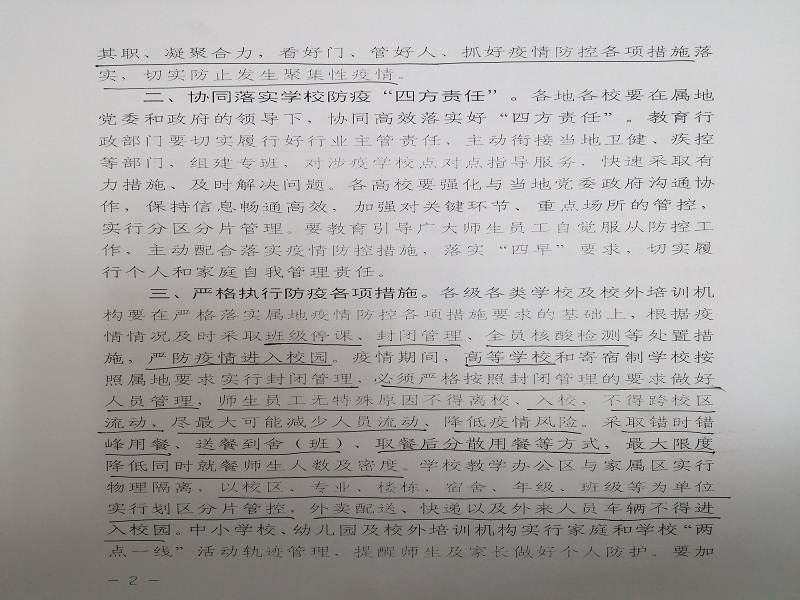 其职、凝聚合力，看好门、管好人、抓好疫情防控各项措施落
实，切实防止发生聚集性疫情。
二、协同落实学校防疫“四方责任”。各地各校要在属地
党委和政府的领导下，协同高效落实好“四方责任”。教育行
政部门要切实履行好行业主管责任，主动衔接当地卫健、疾控
等部门，组建专班，对涉疫学校点对点指导服务，快速采取有
力措施、及时解决问题。各高校要强化与当地党委政府沟通协
作，保持信息畅通高效，加强对关键环节、重点场所的管控，
实行分区分片管理。要教育引导广大师生员工自觉服从防控工
作，主动配合落实疫情防控措施，落实“四早”要求，切实履
行个人和家庭自我管理责任。
三、严格执行防疫各项措施。各级各类学校及校外培训机
构要在严格落实属地疫情防控各项措施要求的基础上，根据疫
情情况及时采取班级停课、封闭管理、全员核酸检测等处置措
施，严防疫情进入校园。疫情期间，高等学校和寄宿制学校按
照属地要求实行封闭管理，必须严格按照封闭管理的要求做好
人员管理，师生员工无特殊原因不得离校、入校，不得跨校区
流动，尽最大可能减少人员流动、降低疫情风险。采取错时错
峰用餐、送餐到舍（班）、取餐后分散用餐等方式，最大限度
降低同时就餐师生人数及密度。学校教学办公区与家属区实行
物理隔离，以校区、专业、楼栋、宿舍、年级、班级等为单位
实行划区分片管控，外卖配送、快递以及外来人员车辆不得进
入校园。中小学校、幼儿园及校外培训机构实行家庭和学校“两
点一线”活动轨迹管理，提醒师生及家长做好个人防护。要加
— 2 —